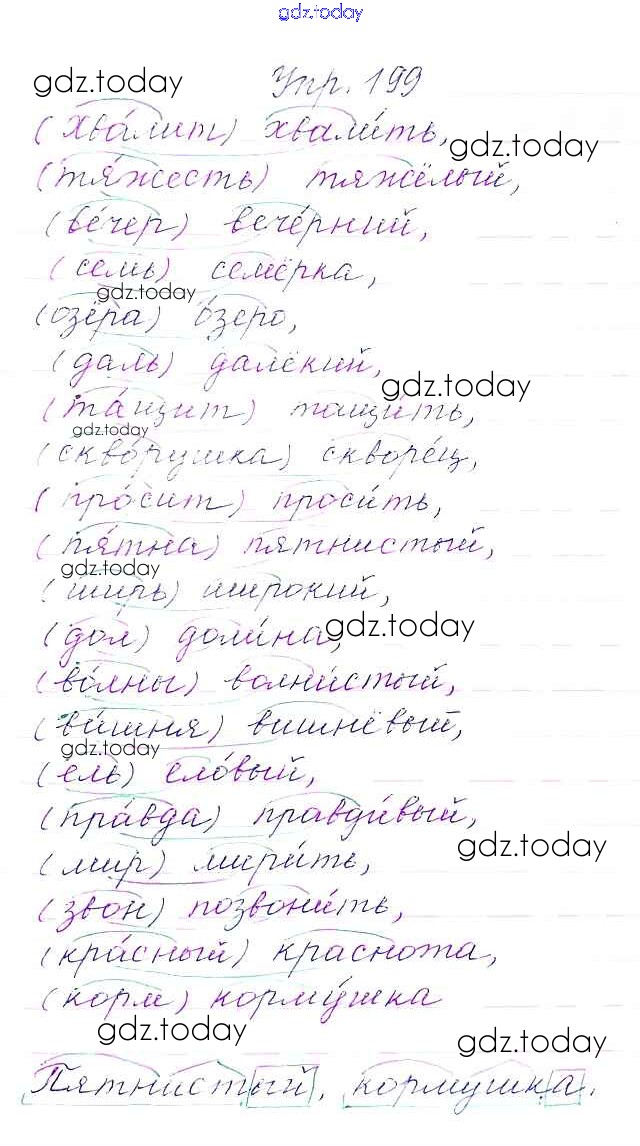 gdz.today
gdz.today
Упр. 199
(хва́лит) хвали́ть,
gdz.today
(тя́жесть) тяжёлый,
(ве́чер) вече́рний,
(семь) семёрка,
gdz.today
(озёра) о́зеро,
(даль) далёкий,
gdz.today
(та́щит) тащи́ть,
gdz.today
(скво́рушка) скворе́ц,
(про́сит) проси́ть,
(пя́тна) пятнистый,
gdz.today
(ширь) широкий,
(дол) доли́на,
gdz.today
(во́лны) волни́стый,
(ви́шня) вишнёвый,
gdz.today
(ель) ело́вый,
(пра́вда) правди́вый,
gdz.today
(мир) мири́ть,
(звон) позвони́ть,
(кра́сный) краснота,
(корм) корму́шка
gdz.today
gdz.today
Пятнистый, кормушка.